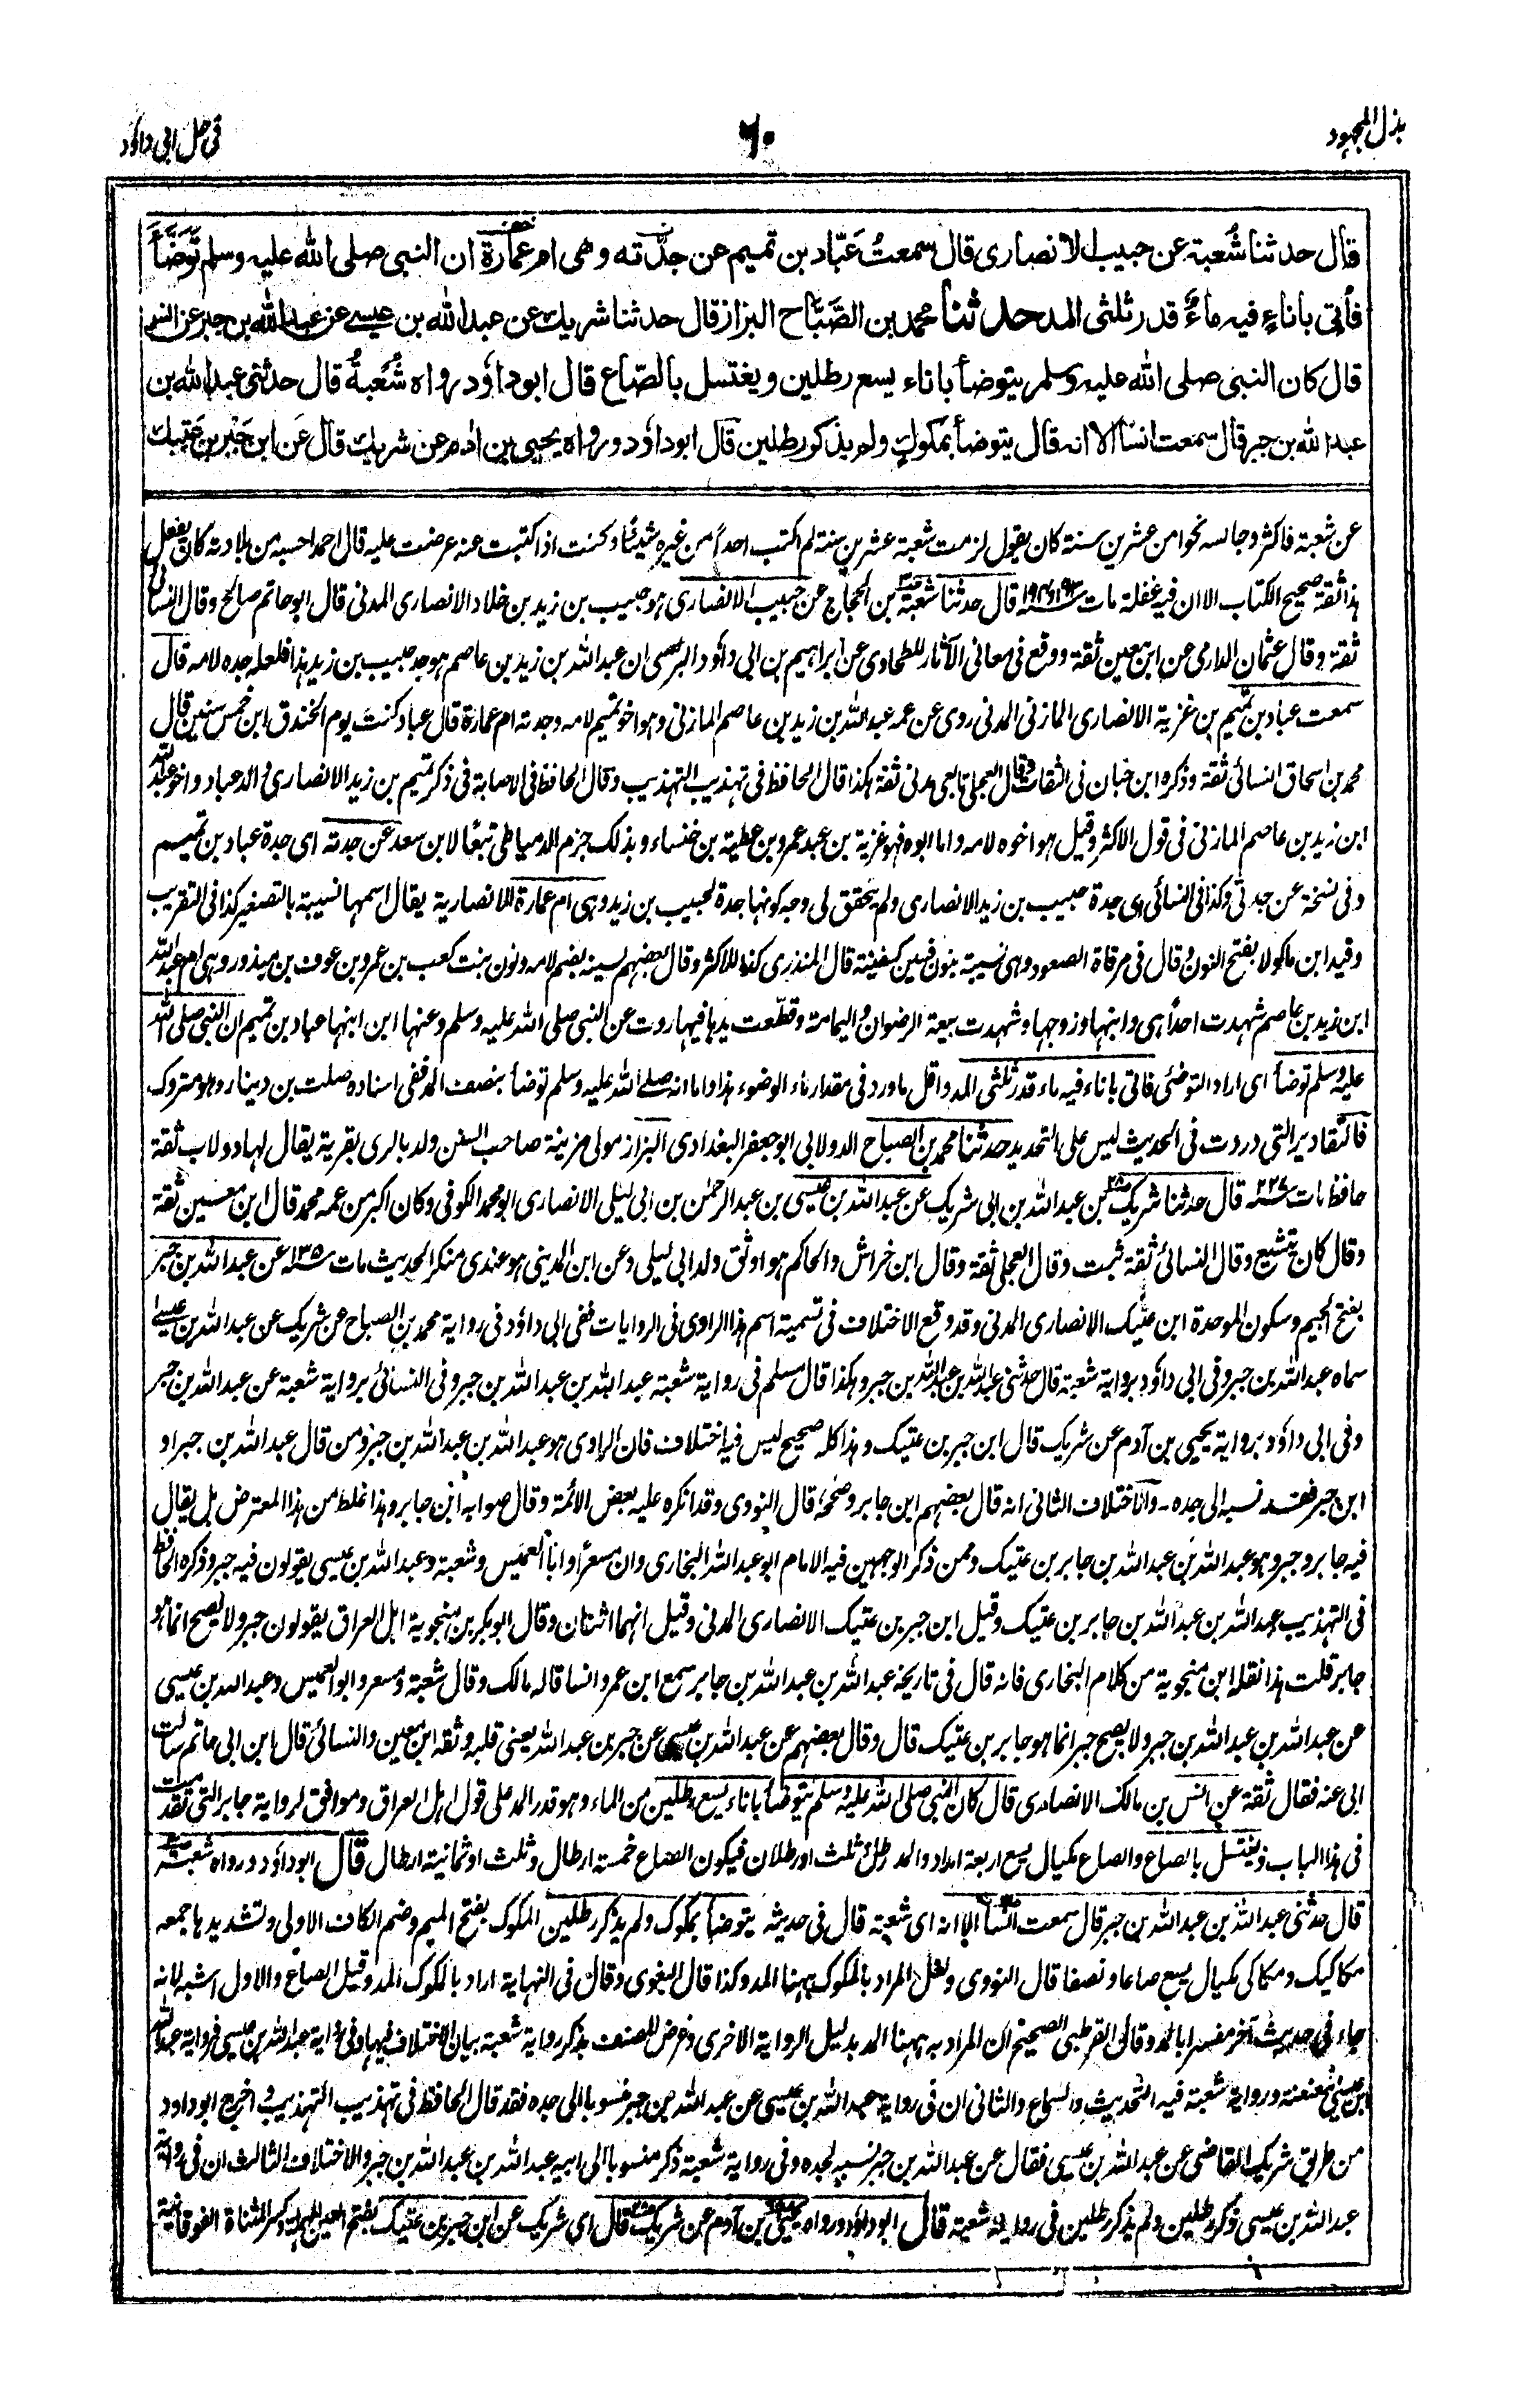 بذل المجهود
٦٠
في حل ابي داؤد
قال حدثنا شُعبة عن حبيب الانصارى قال سمعتُ عَبّاد بن تميم عن جدّته وهى ام عمارة ان النبى صلى الله عليه وسلم تَوَضَّأَ
فأتى باناءٍ فيه ماءٌ قدر ثلثى المد حدثنا محمد بن الصَّبَّاح البزاز قال حدثنا شريك عن عبد الله بن عيسے عن عبد الله بن جبر عن انس
قال كان النبى صلى الله عليه وسلم يتوضأ باناء يسع رطلين ويغتسل بالصّاع قال ابو داؤد رواه شُعبةُ قال حدثنى عبد الله بن
عبد الله بن جبر قال سمعت انسًا الا انه قال يتوضأ بمكوكٍ ولم يذكر رطلين قال ابو داؤد ورواه يحيى بن اٰدم عن شريك قال عَن ابن جَبْر بن عَتِيك
عن شعبة فاكثر وجالسه نحوا من عشرين سنة كان يقول لزمت شعبة عشرين سنة لم اكتب احدًا من غيره شيئًا وكنت اذا كتبت عنه عرضت عليه قال احمد احسبه من بلادته كان يفعل
هذا ثقة صحيح الكتاب الا ان فيه غفلة مات سنة قال حدثنا شعبة بن الحجاج عن حبيب الانصارى هو حبيب بن زيد بن خلاد الانصارى المدنى قال ابو حاتم صالح وقال النسائى
ثقة وقال عثمان الدارمى عن ابن معين ثقة ووقع فى معانى الآثار للطحاوى عن ابراهيم بن ابى داؤد البرلسى ان عبد الله بن زيد بن عاصم هو جد حبيب بن زيد هذا فلعله جده لامه قال
سمعت عباد بن تميم بن غزية الانصارى المازنى المدنى روى عن عمه عبد الله بن زيد بن عاصم المازنى وهو اخو تميم لامه وجدته ام عمارة قال عباد كنت يوم الخندق ابن خمس سنين قال
محمد بن اسحاق النسائى ثقة وذكره ابن حبان فى الثقات وقال العجلى تابعى مدنى ثقة هكذا قال الحافظ فى تهذيب التهذيب وقال الحافظ فى الاصابة فى ذكر تميم بن زيد الانصارى والد عباد واخو عبد الله
ابن زيد بن عاصم المازنى فى قول الاكثر وقيل هو اخوه لامه واما ابوه فهو غزية بن عبد عمرو بن عطية بن خنساء وبذلك جزم الدمياطى تبعًا لابن سعد عن جدته اى جدة عباد بن تميم
وفى نسخة عن جدتى وكذا فى النسائى اى جدة حبيب بن زيد الانصارى ولم يتحقق لى وجه كونها جدة لحبيب بن زيد وهى ام عمارة الانصارية يقال اسمها نسيبة بالتصغير كذا فى التقريب
وقيد ابن ماكولا بفتح النون وقال فى مرقاة الصعود وهى نسيبة بنون فسين كسفينة قال المنذرى كذا للاكثر وقال بعضهم لسينه بضم لامه ونون بنت كعب بن عمرو بن عوف بن مبذور وهى ام عبد الله
ابن زيد بن عاصم شهدت احدًا هى وابنها وزوجها وشهدت بيعة الرضوان واليمامة وقطعت يدها فيها روت عن النبى صلى الله عليه وسلم وعنها ابن ابنها عباد بن تميم ان النبى صلى الله
عليه وسلم توضأ اى اراد التوضئى فاتى باناء فيه ماء قدر ثلثى المد واقل ما ورد فى مقدار ماء الوضوء هذا واما انه صلے الله عليه وسلم توضأ بنصف المد ففى اسناده صلت بن دينار وهو متروك
فالتقادير التى وردت فى الحديث ليس على التحديد حدثنا محمد بن الصباح الدولابى ابو جعفر البغدادى البزاز مولى مزينة صاحب السنن ولد بالرى بقرية يقال لها دولاب ثقة
حافظ مات سنة ٢٢٧ قال حدثنا شريك بن عبد الله بن ابى شريك عن عبد الله بن عيسى بن عبد الرحمٰن بن ابى ليلى الانصارى ابو محمد الكوفى وكان اكبر من عمه محمد قال ابن معين ثقة
وقال كان يتشيع وقال النسائى ثقة ثبت وقال العجلى ثقة وقال ابن خراش والحاكم هو اوثق ولد ابى ليلى وعن ابن المدينى هو عندى منكر الحديث مات سنة ١٣٥ عن عبد الله بن جبر
بفتح الجيم وسكون الموحدة ابن عتيك الانصارى المدنى وقد وقع الاختلاف فى تسمية اسم هذا الراوى فى الروايات ففى ابى داؤد فى رواية محمد بن الصباح عن شريك عن عبد الله بن عيسے
سماه عبد الله بن جبر وفى ابى داؤد برواية شعبة قال حدثنى عبد الله بن عبد الله بن جبر وهكذا قال مسلم فى رواية شعبة عبد الله بن عبد الله بن جبر وفى النسائى برواية شعبة عن عبد الله بن جبر
وفى ابى داؤد برواية يحيى بن آدم عن شريك قال ابن جبر بن عتيك وهذا كله صحيح ليس فيه اختلاف فان الراوى هو عبد الله بن عبد الله بن جبر ومن قال عبد الله بن جبر او
ابن جبر فقد نسبه الى جده۔ واما اختلاف الثانى انه قال بعضهم ابن جابر وضحه قال النووى وقد انكره عليه بعض الائمة وقال صوابه ابن جابر وهذا غلط من هذا المعترض بل يقال
فيه جابر وجبر وهو عبد الله بن عبد الله بن جابر بن عتيك وممن ذكر الوجهين فيه الامام ابو عبد الله البخارى وان مسعرًا وابا العميس وشعبة وعبد الله بن عيسى يقولون فيه جبر وذكره الحافظ
فى التهذيب عبد الله بن عبد الله بن جابر بن عتيك وقيل ابن جبر بن عتيك الانصارى المدنى وقيل انهما اثنان وقال ابو بكر بن منجوية اهل العراق يقولون جبر ولا يصح انما هو
جابر قلت هذا نقله ابن منجوية من كلام البخارى فانه قال فى تاريخه عبد الله بن عبد الله بن جابر سمع ابن عمر وانسا قاله مالك وقال شعبة ومسعر وابو العميس وعبد الله بن عيسى
عن عبد الله بن عبد الله بن جبر ولا يصح جبر انما هو جابر بن عتيك قال وقال بعضهم عن عبد الله بن عيسى عن جبر بن عبد الله يعنى قلبه وثقه ابن معين والنسائى قال ابن ابى حاتم سالت
ابى عنه فقال ثقة عن انس بن مالك الانصارى قال كان النبى صلى الله عليه وسلم يتوضأ باناء يسع رطلين من الماء وهو قدر المد على قول اهل العراق وموافق لرواية جابر التى تقدمت
فى هذا الباب ويغتسل بالصاع والصاع مكيال يسع اربعة امداد والمد رطل وثلث او رطلان فيكون الصاع خمسة ارطال وثلث او ثمانية ارطال قال ابو داؤد ورواه شعبة
قال حدثنى عبد الله بن عبد الله بن جبر قال سمعت انسا الا انه اى شعبة قال فى حديثه يتوضأ بمكوك ولم يذكر رطلين المكوك بفتح الميم وضم الكاف الاولى وتشديدها جمعه
مكاكيك ومكاكى مكيال يسع صاعا ونصفا قال النووى ولعل المراد بالمكوك ههنا المد وكذا قال البغوى وقال فى النهاية اراد بالمكوك المد وقيل الصاع والاول اشبه لانه
جاء فى حديث آخر مفسرا بالمد وقال القرطبى الصحيح ان المراد به ههنا المد بدليل الرواية الاخرى وغرض المصنف بذكر رواية شعبة بيان الاختلاف فيها وفى رواية عبد الله بن عيسى فرواية عبد الله
بن عيسى بعنعنة ورواية شعبة فيه التحديث والسماع والثانى ان فى رواية عبد الله بن عيسى عن عبد الله بن جبر منسوبا الى جده فقد قال الحافظ فى تهذيب التهذيب واخرج ابو داود
من طريق شريك القاضى عن عبد الله بن عيسى فقال عن عبد الله بن جبر نسبه لجده وفى رواية شعبة ذكر منسوبا الى ابيه عبد الله بن عبد الله بن جبر والاختلاف الثالث ان فى رواية
عبد الله بن عيسى ذكر رطلين ولم يذكر رطلين فى رواية شعبة قال ابو داؤد ورواه يحيى بن آدم عن شريك قال اى شريك عن ابن جبر بن عتيك بفتح العين المهملة وكسر المثناة الفوقانية